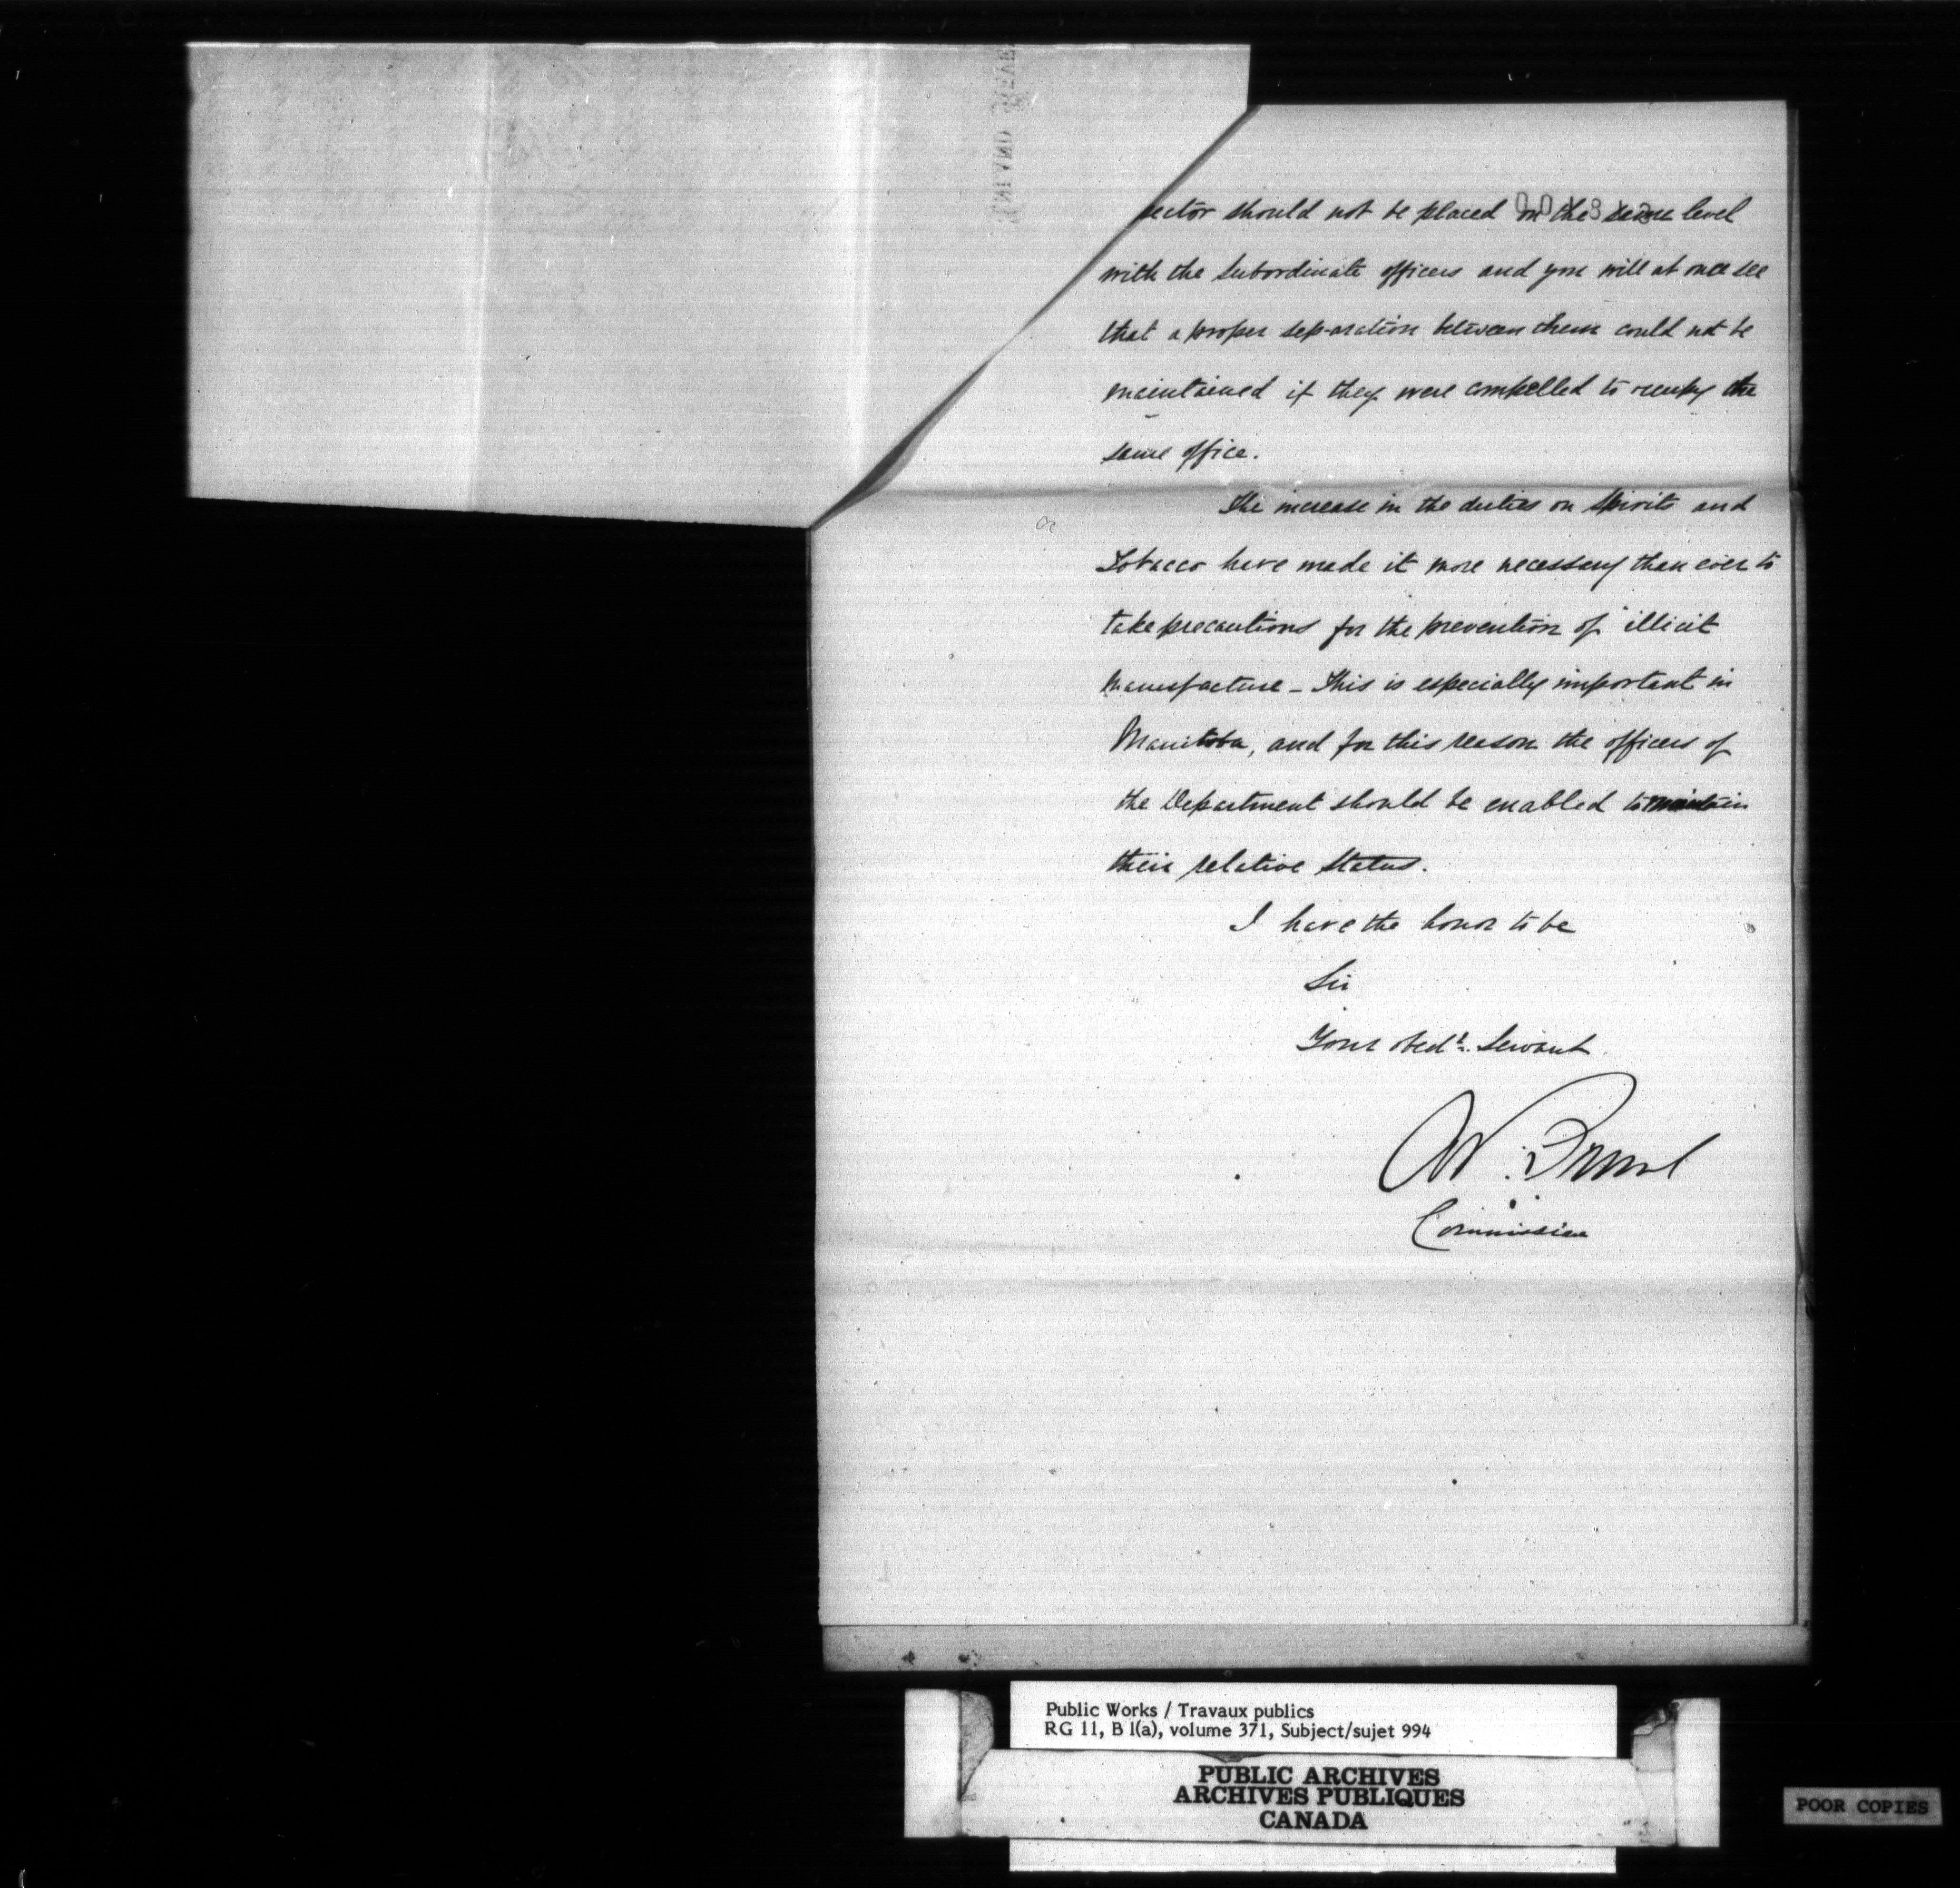 pector should not be placed on the same level
with the subordinate officers and you will at once see
that a proper separation between them could not be
maintained if they were compelled to occupy the
same office.
The increase in the duties on Spirits and
Tobacco have made it more necessary than ever to
take precautions for the prevention of illicit
manufacture – This is especially important in
Manitoba, and for this reason the officers of
the Department should be enabled to maintain
their relative status.
I have the honor to be
Sir
Your obedt. Servant
W. Brunel
Commissioner
Public Works / Travaux publics
RG 11, B 1(a), volume 371, Subject/sujet 994
PUBLIC ARCHIVES
ARCHIVES PUBLIQUES
CANADA
POOR COPIES